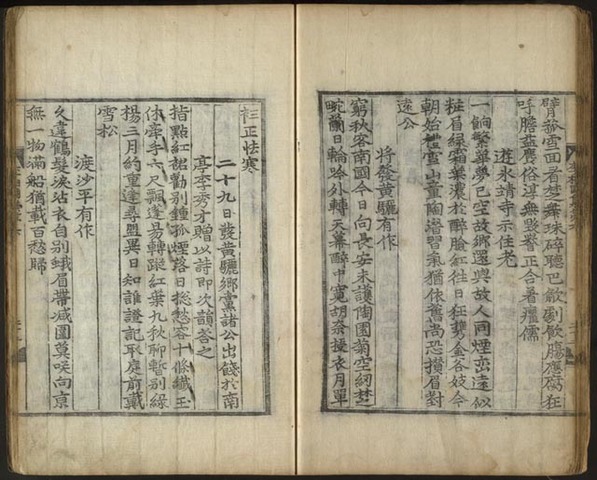 面看楚舞珠碎聽巴歈劇飲腸應腐狂
呼膽益麤俗淳無毀譽正合着癯儒
遊永靖寺示住老
一餉繁華夢已空故鄉還與故人同煙巒遠似
粧眉綠霜葉濃於醉臉紅往日狂携金谷妓今
朝始禮雪山童陶潛習氣猶依舊尚恐攢眉對
遠公
將發黃驪有作
窮秋客南國今日向長安未護陶園菊空紉楚
畹蘭日輪吟外轉天幕醉中寬胡奈授衣月單
袗正怯寒
二十九日發黃驪鄉黨諸公出餞於南
亭李秀才贈以詩即次韻答之
指點紅裙勸別鍾孤煙落日惱愁容十條纖玉
休牽手六尺飄蓬易轉蹤紅葉九秋聊暫別綠
楊三月約重逢尋盟異日知誰證記取庭前戴
雪松
渡沙平有作
久違鶴髮淚沾衣自別蛾眉帶減圍莫咲向京
無一物滿船猶載百愁歸